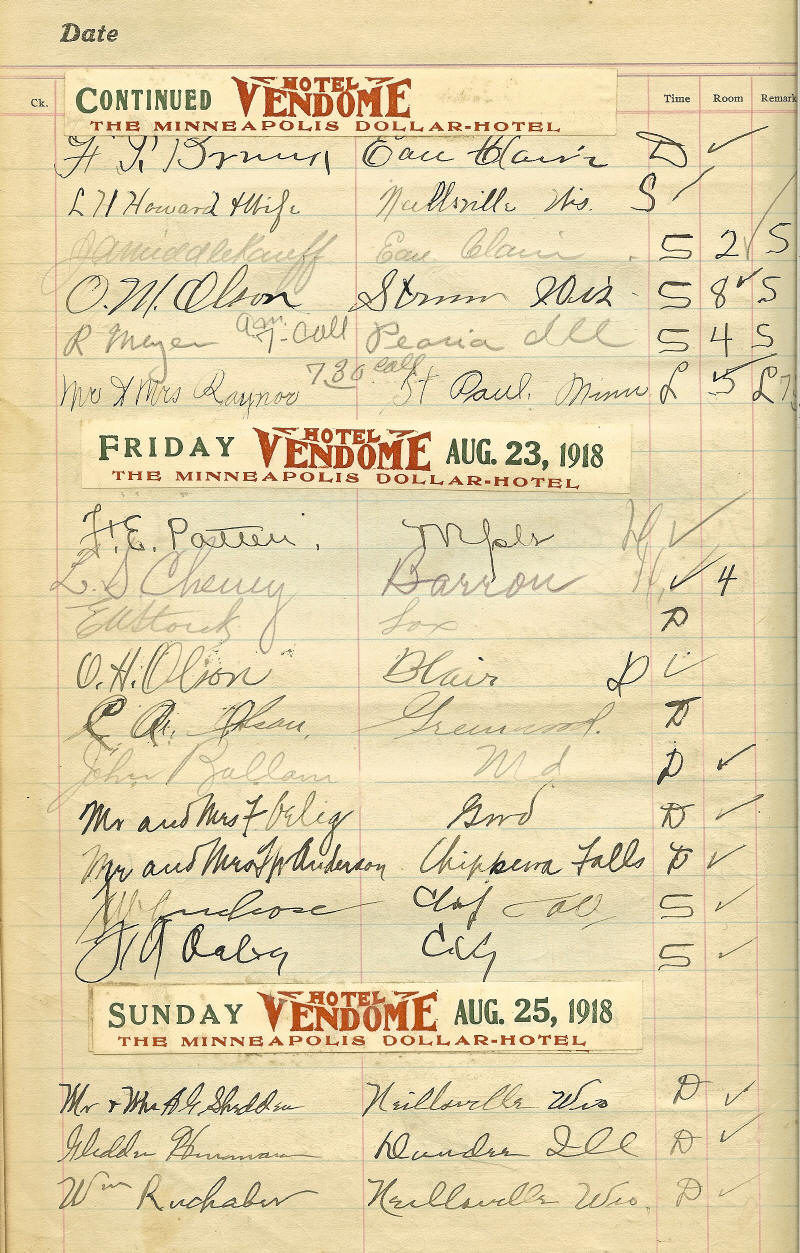 Date
Ck. Time Room Remark
CONTINUED HOTEL VENDOME
THE MINNEAPOLIS DOLLAR-HOTEL
Eau Claire D ✓
L H Howard & Wife Neillsville Wis. S ✓
J A Middlekauff Eau Clair S 2 ✓ S
O. M. Olson Strum Wis S 8 ✓ S
R Meyer a.m. 7- Call Peoria Ill S 4 S
Mr & Mrs Raynor 7 30 call St Paul. Minn L 5 L 7
FRIDAY HOTEL VENDOME AUG. 23, 1918
THE MINNEAPOLIS DOLLAR-HOTEL
F. E. Patten. Mpls ✓
L. S Cheney Barron ✓ 4
D
O. H. Olson Blair D ✓
Olson, Greenwood. D
John Ballam Md D ✓
Mr and Mrs F D ✓
Mr and Mrs Anderson Chippewa Falls D ✓
S ✓
City S ✓
SUNDAY HOTEL VENDOME AUG. 25, 1918
THE MINNEAPOLIS DOLLAR-HOTEL
Mr & Mrs A G Shedden Neillsville Wis D ✓
Dundee Ill D ✓
Wm Neillsville Wis. D ✓